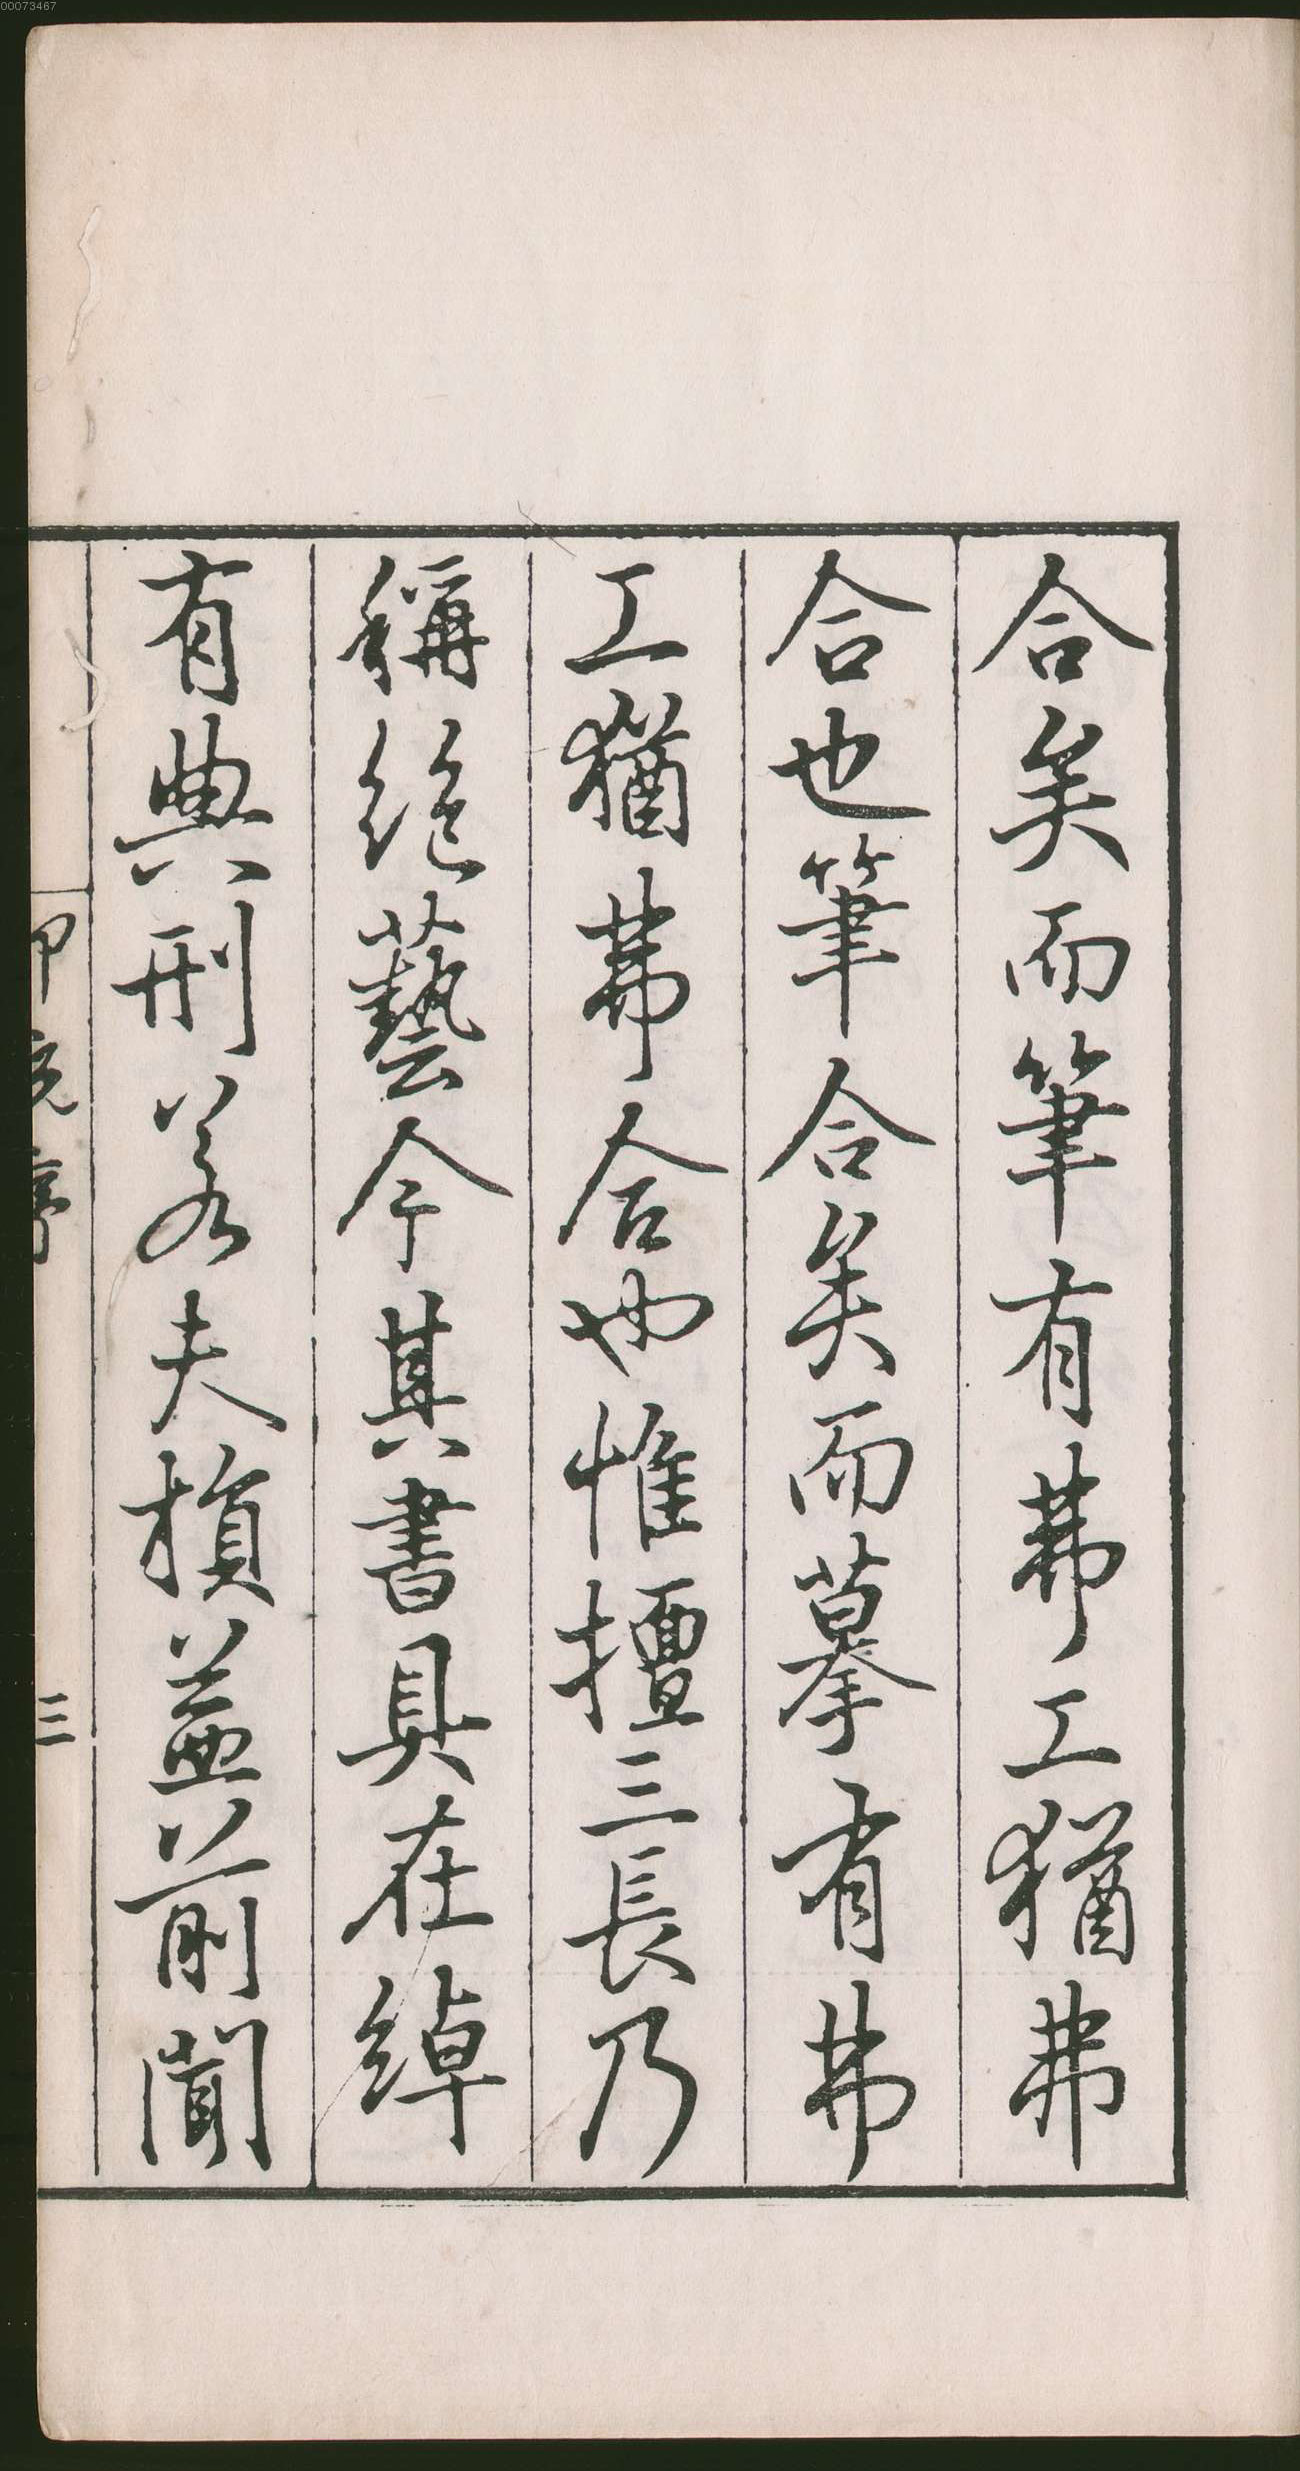 合矣而筆有弗工猶弗
合也筆合矣而摹有弗
工猶弗合也惟擅三長乃
稱絶藝今其書具在綽
有典刑若夫損益前聞
序
三
00073467